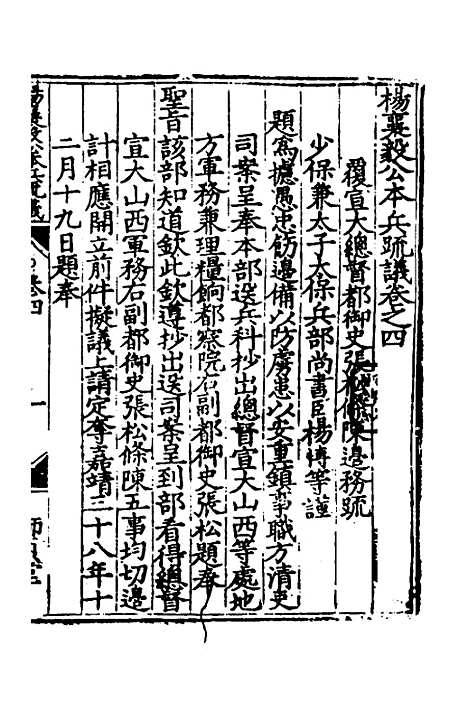 楊襄毅公本兵疏議卷之四
覆宣大總督都御史張松條陳邊務疏
少保兼太子太保兵部尚書臣楊博等謹
題為攄愚忠飭邊備以防虜患以安重鎮事職方清吏
司案呈奉本部送兵科抄出總督宣大山西等處地
方軍務兼理糧餉都察院右副都御史張松題奉
聖旨該部知道欽此欽遵抄出送司案呈到部看得總督
宣大山西軍務右副都御史張松條陳五事均切邊
計相應開立前件擬議上請定奪嘉靖三十八年十
二月十九日題奉
楊襄毅公本兵疏議
卷四
一
師